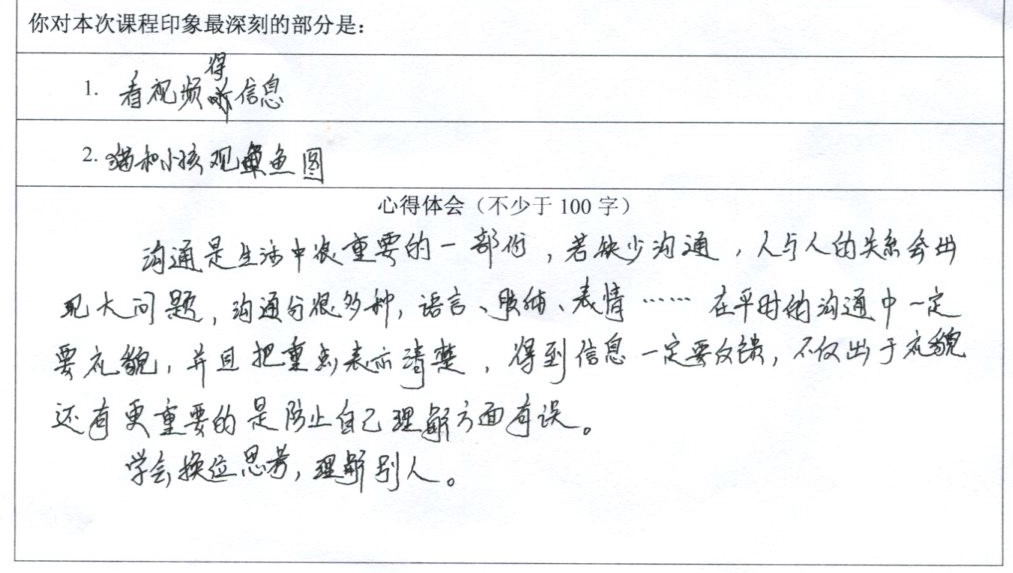 你对本次课程印象最深刻的部分是：
1. 看视频得信息
2. 猫和小孩观章鱼图
心得体会（不少于 100 字）
沟通是生活中很重要的一部份，若缺少沟通，人与人的关系会出
现大问题，沟通分很多种，语言、肢体、表情……在平时的沟通中一定
要礼貌，并且把重点表示清楚，得到信息一定要反馈，不仅出于礼貌
还有更重要的是防止自己理解方面有误。
学会换位思考，理解别人。